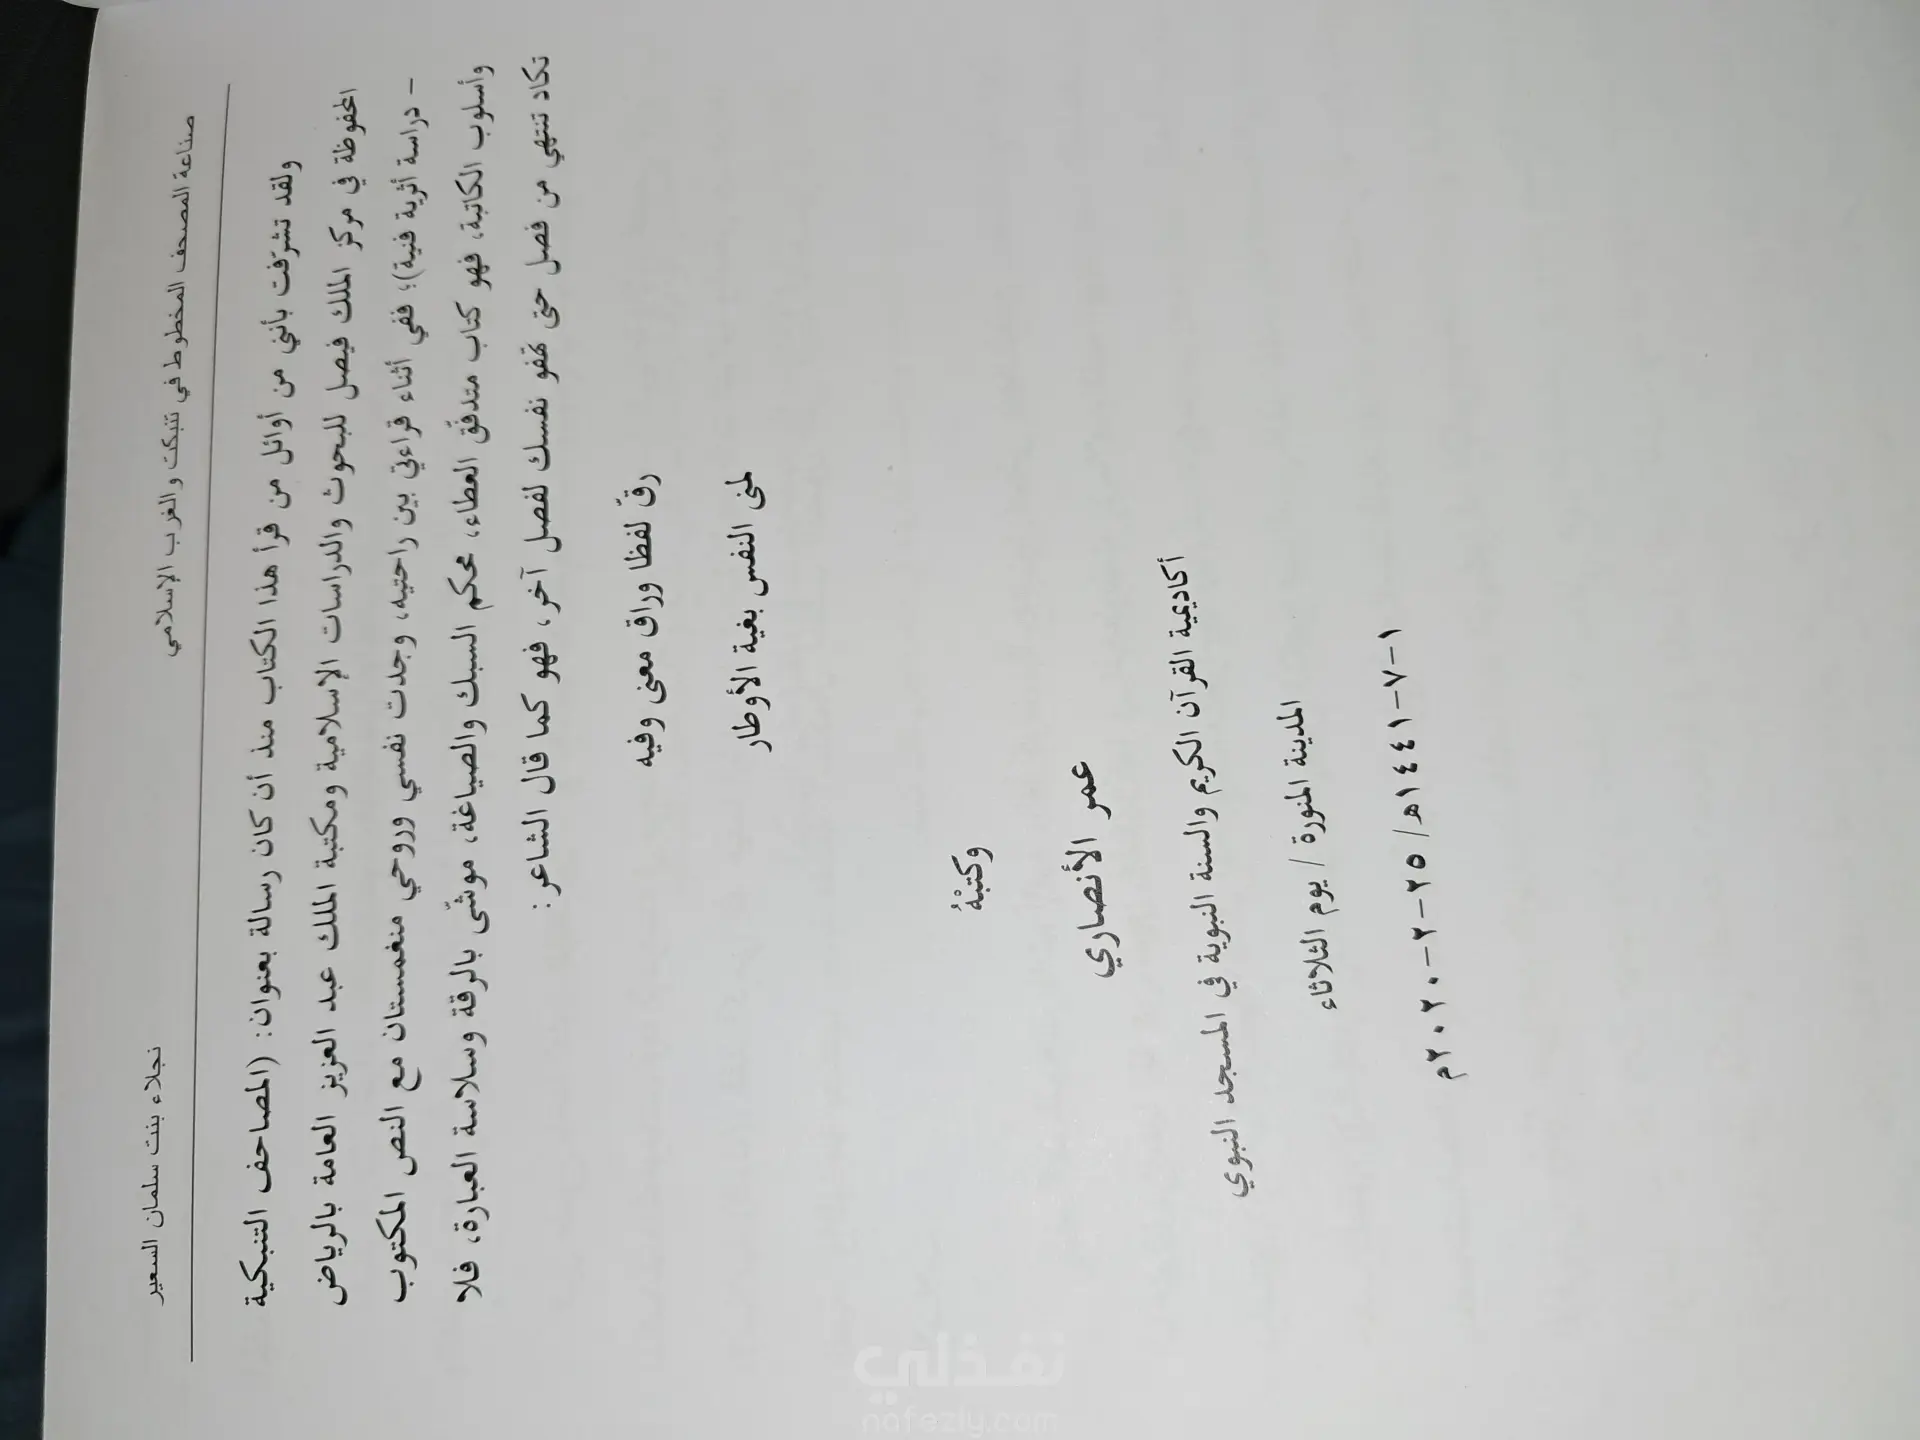 صناعة المصحف المخطوط في تنبكت والغرب الإسلامي
نجلاء بنت سلمان السعير
ولقد تشرّفت بأنني من أوائل من قرأ هذا الكتاب منذ أن كان رسالة بعنوان: (المصاحف التنبكية
المحفوظة في مركز الملك فيصل للبحوث والدراسات الإسلامية ومكتبة الملك عبد العزيز العامة بالرياض
– دراسة أثرية فنية)؛ ففي أثناء قراءتي بين راحتيه، وجدت نفسي وروحي منغمستان مع النص المكتوب
وأسلوب الكاتبة، فهو كتاب متدفّق العطاء، محكم السبك والصياغة، موشّى بالرقة وسلاسة العبارة، فلا
تكاد تنتهي من فصل حتى تهفو نفسك لفصل آخر، فهو كما قال الشاعر:
رقّ لفظا وراق معنى وفيه
لمنى النفس بغية الأوطار
وكتبْهُ
عمر الأنصاري
أكاديمية القرآن الكريم والسنة النبوية في المسجد النبوي
المدينة المنورة / يوم الثلاثاء
١-٧-١٤٤١هـ/ ٢٥-٢-٢٠٢٠م
نفذلي
nafezly.com